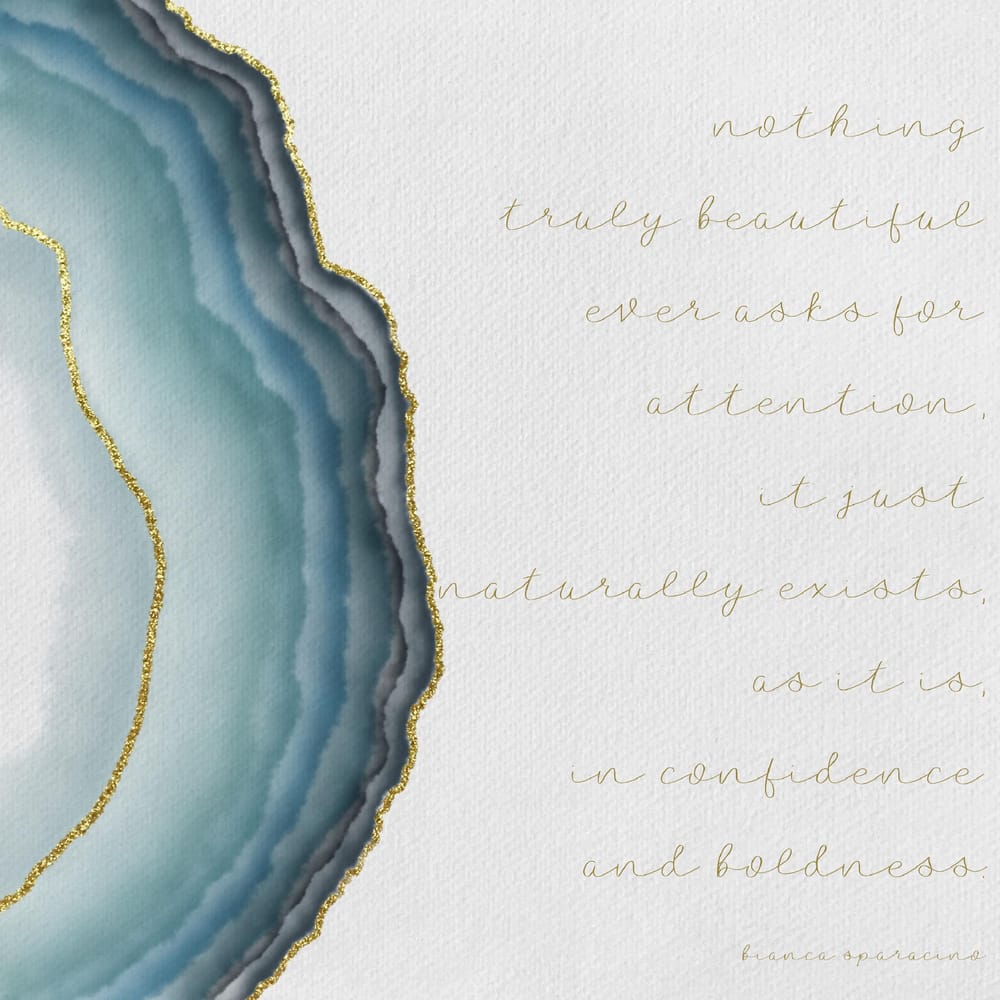 nothing
truly beautiful
ever asks for
attention,
it just
naturally exists,
as it is,
in confidence
and boldness.
bianca sparacino